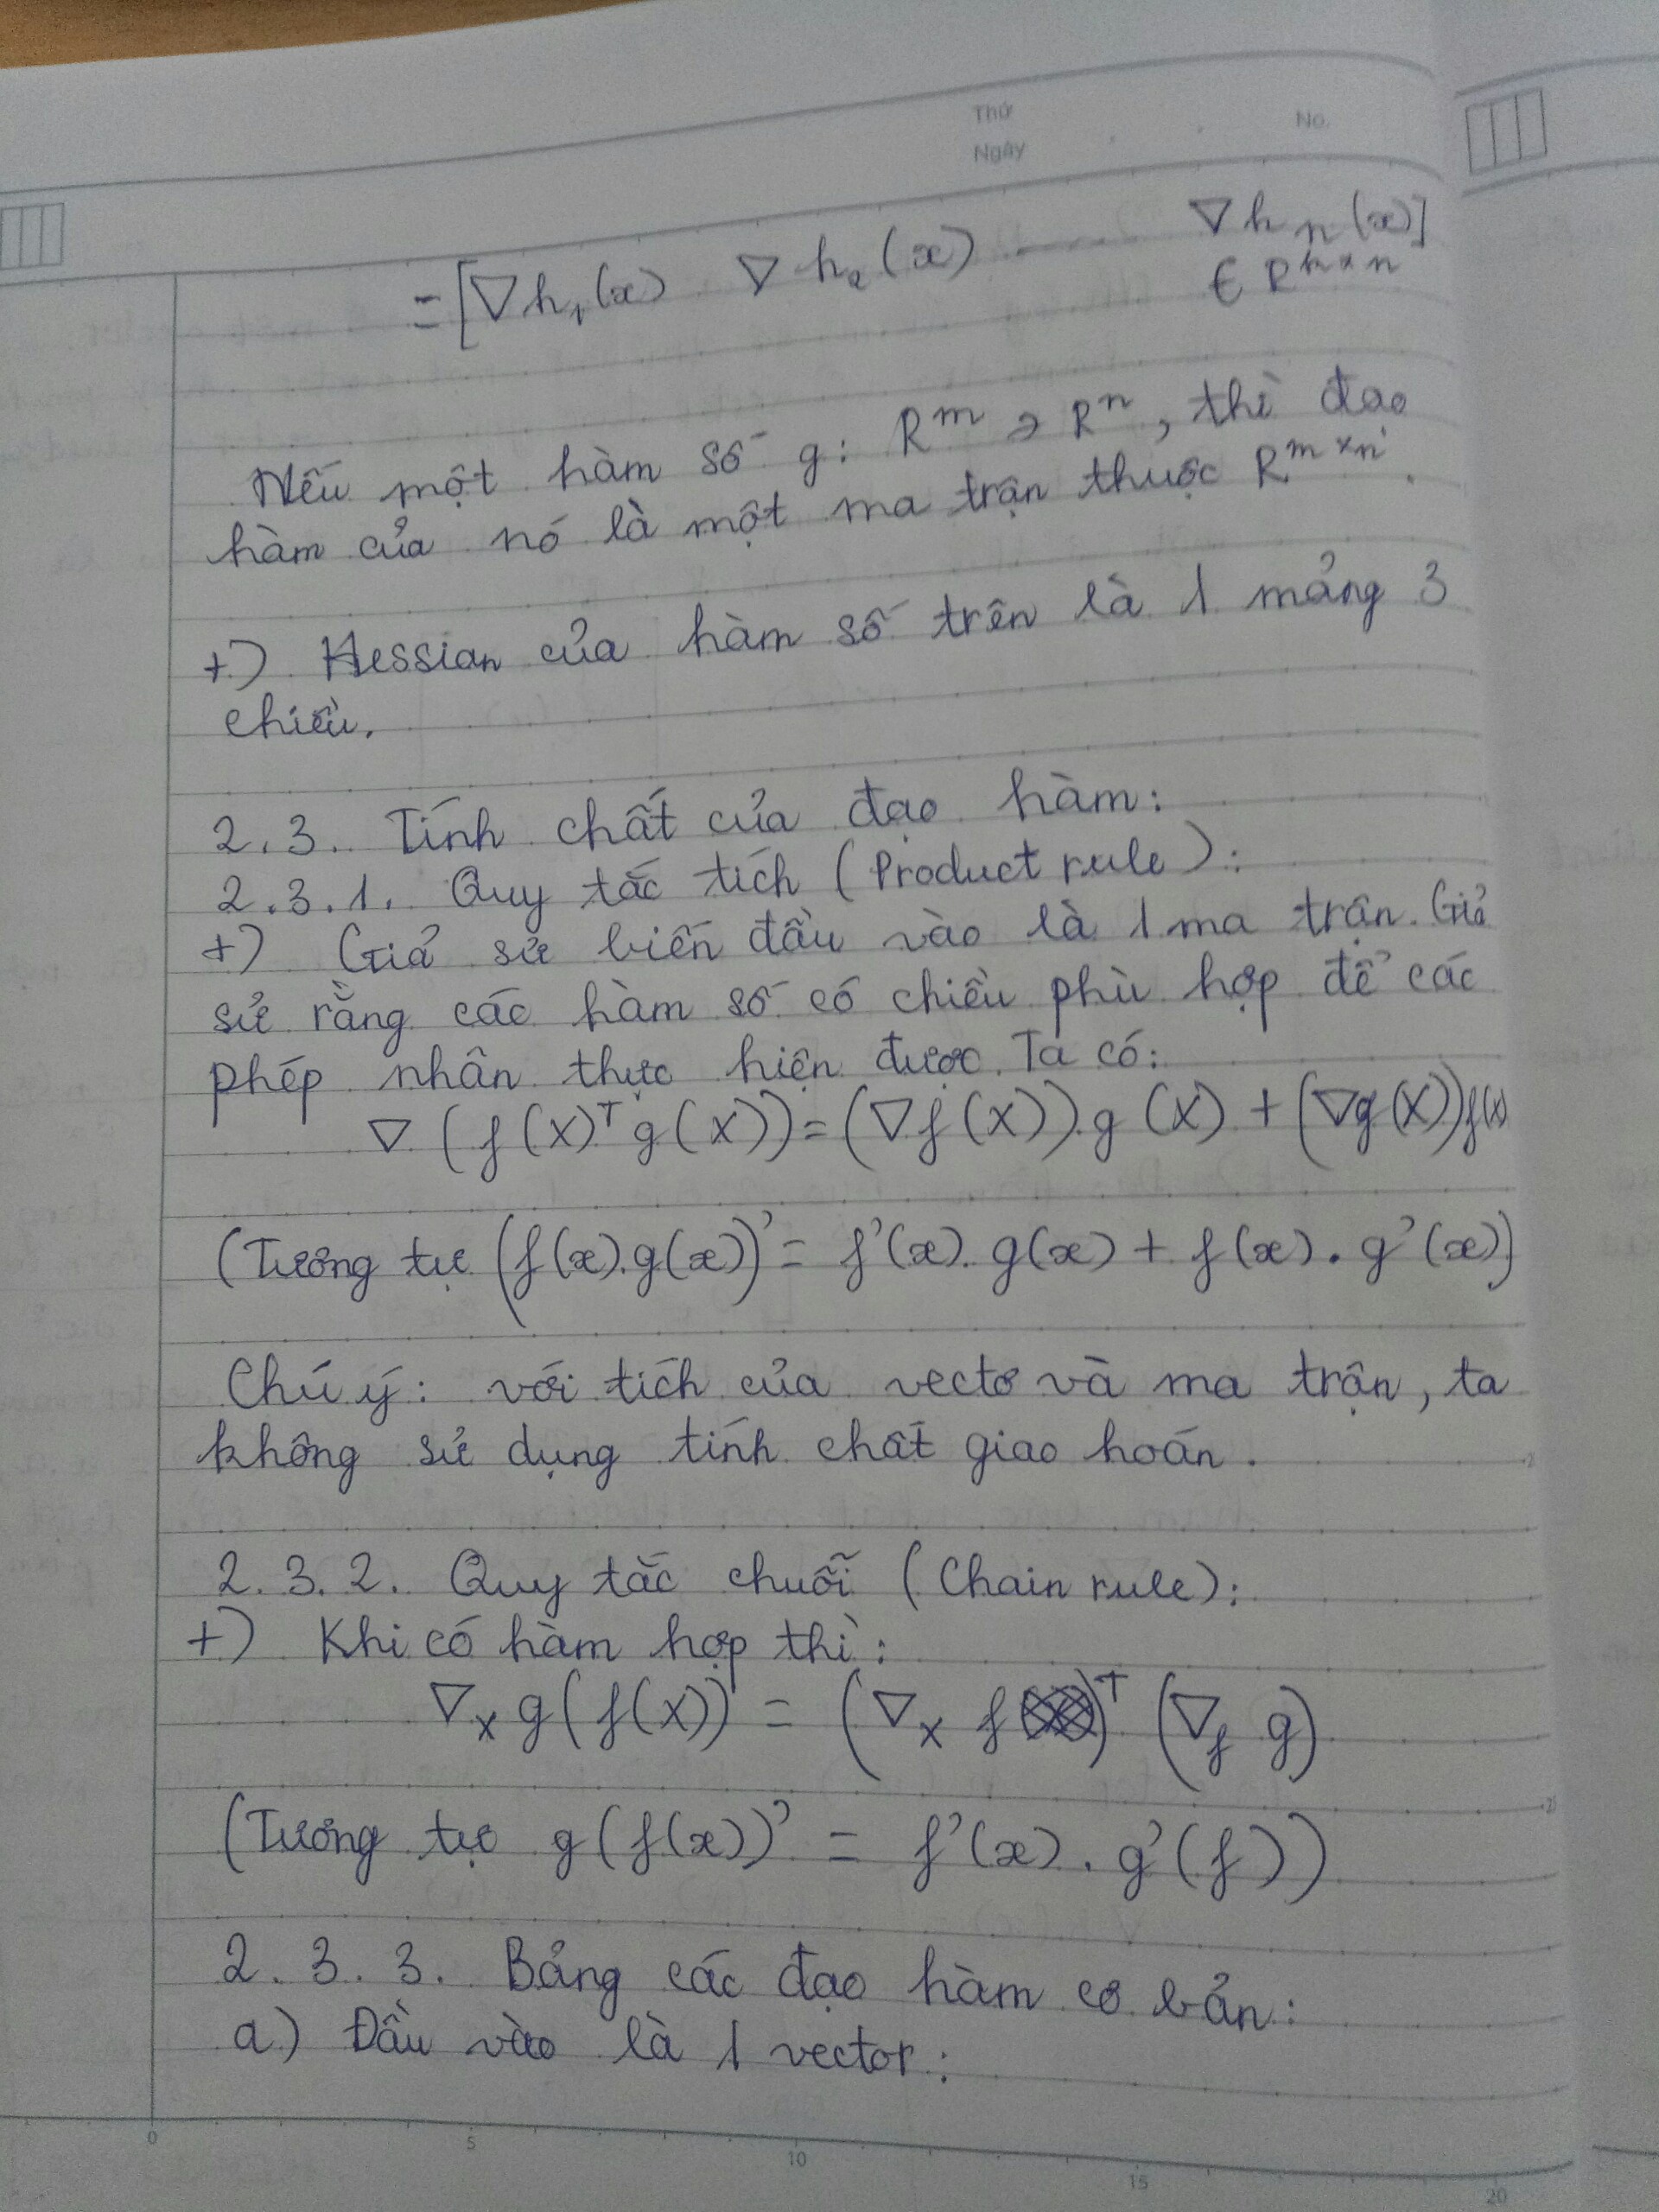 Thứ
Ngày
No.
= [∇h₁(x) ∇h₂(x) ...... ∇hₙ(x)]
∈ R^{n×n}
Nếu một hàm số g: R^m → R^n, thì đạo
hàm của nó là một ma trận thuộc R^{m×n}.
+) Hessian của hàm số trên là 1 mảng 3
chiều.
2.3. Tính chất của đạo hàm:
2.3.1. Quy tắc tích (Product rule):
+) Giả sử biến đầu vào là 1 ma trận. Giả
sử rằng các hàm số có chiều phù hợp để các
phép nhân thực hiện được. Ta có:
∇(f(X)^T g(X)) = (∇f(X)).g(X) + (∇g(X))f(X)
(Tương tự (f(x).g(x))' = f'(x).g(x) + f(x).g'(x))
Chú ý: với tích của vectơ và ma trận, ta
không sử dụng tính chất giao hoán.
2.3.2. Quy tắc chuỗi (Chain rule):
+) Khi có hàm hợp thì:
∇_X g(f(X)) = (∇_X f)^T (∇_f g)
(Tương tự g(f(x))' = f'(x).g'(f))
2.3.3. Bảng các đạo hàm cơ bản:
a) Đầu vào là 1 vector:
0 5 10 15 20